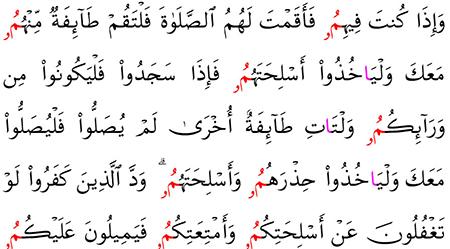 وَإِذَا كُنتَ فِيهِمُۥ فَأَقَمْتَ لَهُمُ ٱلصَّلَوٰةَ فَلْتَقُمْ طَآئِفَةٌ مِّنْهُمُۥ
مَعَكَ وَلْيَاخُذُوٓا۟ أَسْلِحَتَهُمُۥ فَإِذَا سَجَدُوا۟ فَلْيَكُونُوا۟ مِن
وَرَآئِكُمُۥ وَلْتَاتِ طَآئِفَةٌ أُخْرَىٰ لَمْ يُصَلُّوا۟ فَلْيُصَلُّوا۟
مَعَكَ وَلْيَاخُذُوا۟ حِذْرَهُمُۥ وَأَسْلِحَتَهُمُۥ ۗ وَدَّ ٱلَّذِينَ كَفَرُوا۟ لَوْ
تَغْفُلُونَ عَنْ أَسْلِحَتِكُمُۥ وَأَمْتِعَتِكُمُۥ فَيَمِيلُونَ عَلَيْكُمُۥ